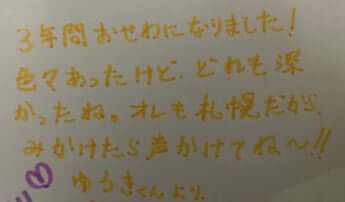 3年間おせわになりました!
色々あったけど、どれも深
かったね。オレも札幌だから、
みかけたら声かけてね〜!!
ゆうきくんより